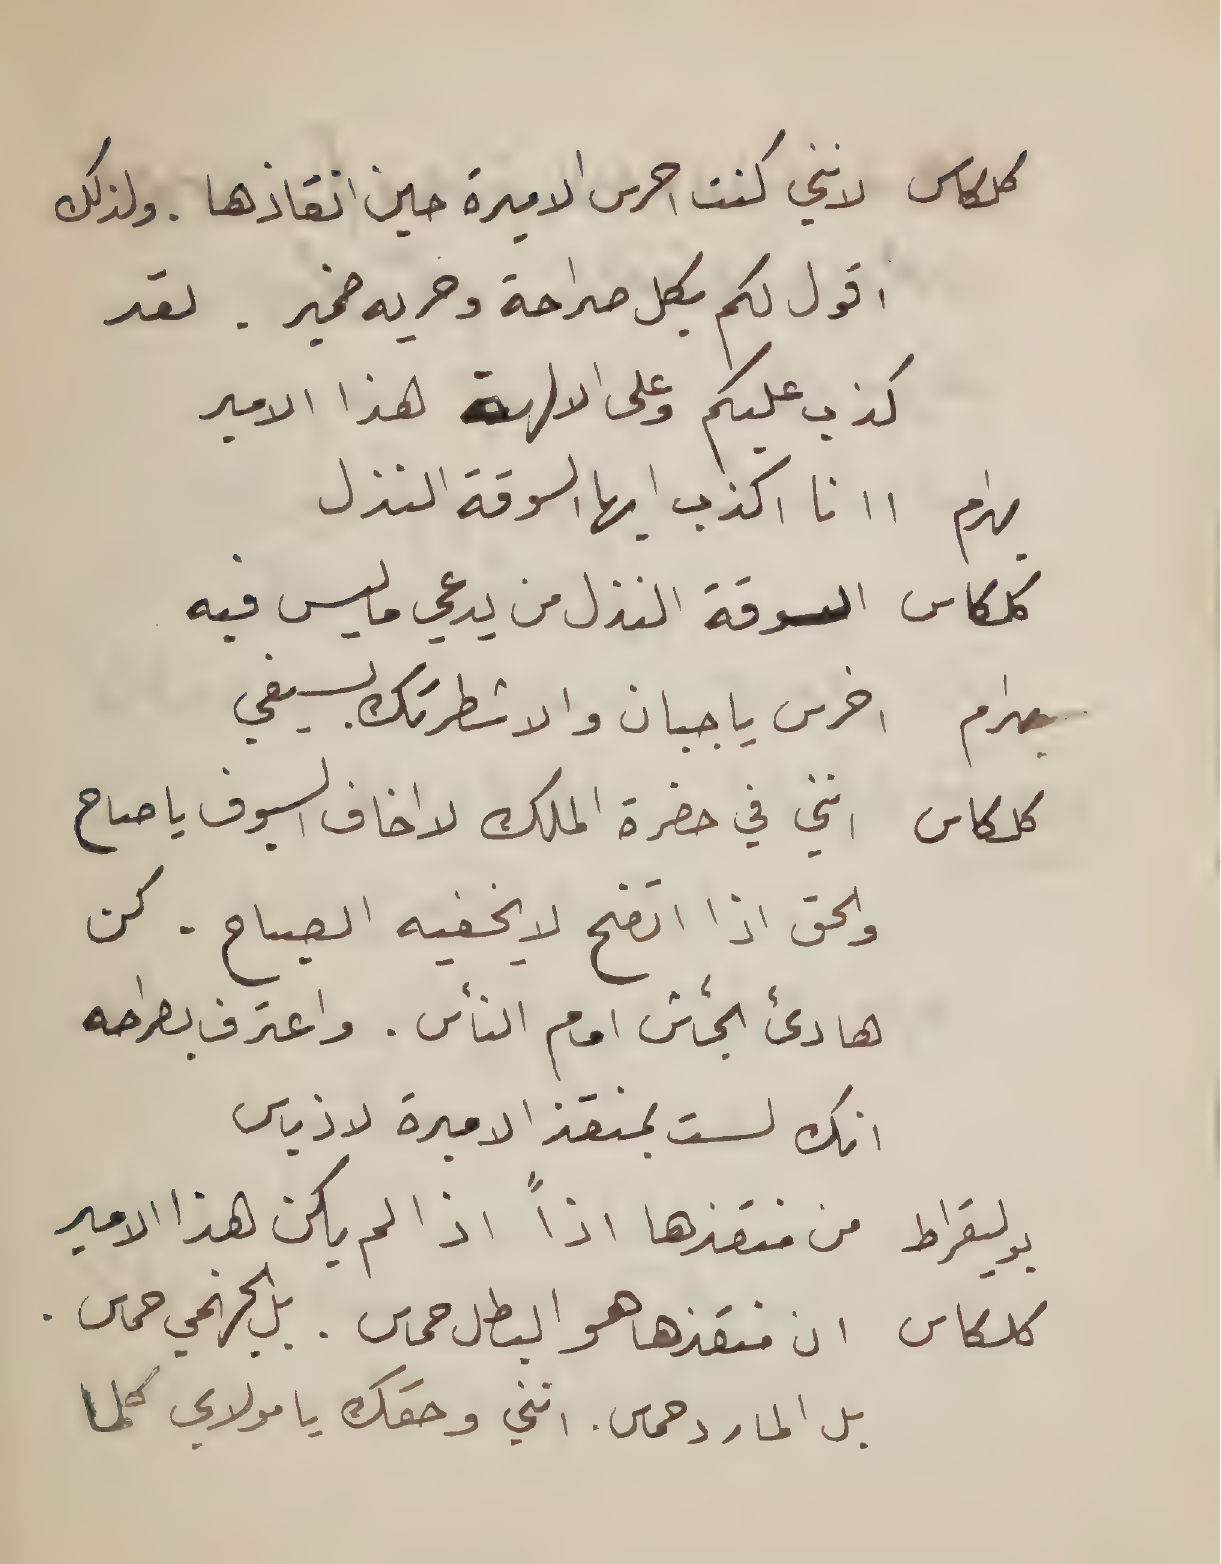 كلكاس لانني كنت احرس الاميرة حين انقاذها . ولذلك
اقول لكم بكل صراحة وحريه ضمير . لقد
كذب عليكم وعلى الالهة هذا الامير
بهرام اانا اكذب ايها السوقة النذل
كلكاس السوقة النذل من يدعي ماليس فيه
بهرام اخرس يا جبان والا شطرتك بسيفي
كلكاس انني في حضرة الملك لا اخاف السيوف يا صاح
والحق اذا اتضح لا يخفيه الصياح . كن
هادئ الجأش امام النأس . واعترف بصراحه
انك لست بمنقذ الاميرة لاذياس
بوليقراط من منقذها اذاً اذا لم يكن هذا الامير
كلكاس ان منقذها هو البطل حماس . بل الجهنمي حماس .
بل المارد حماس . انني وحقك يا مولاي كلما